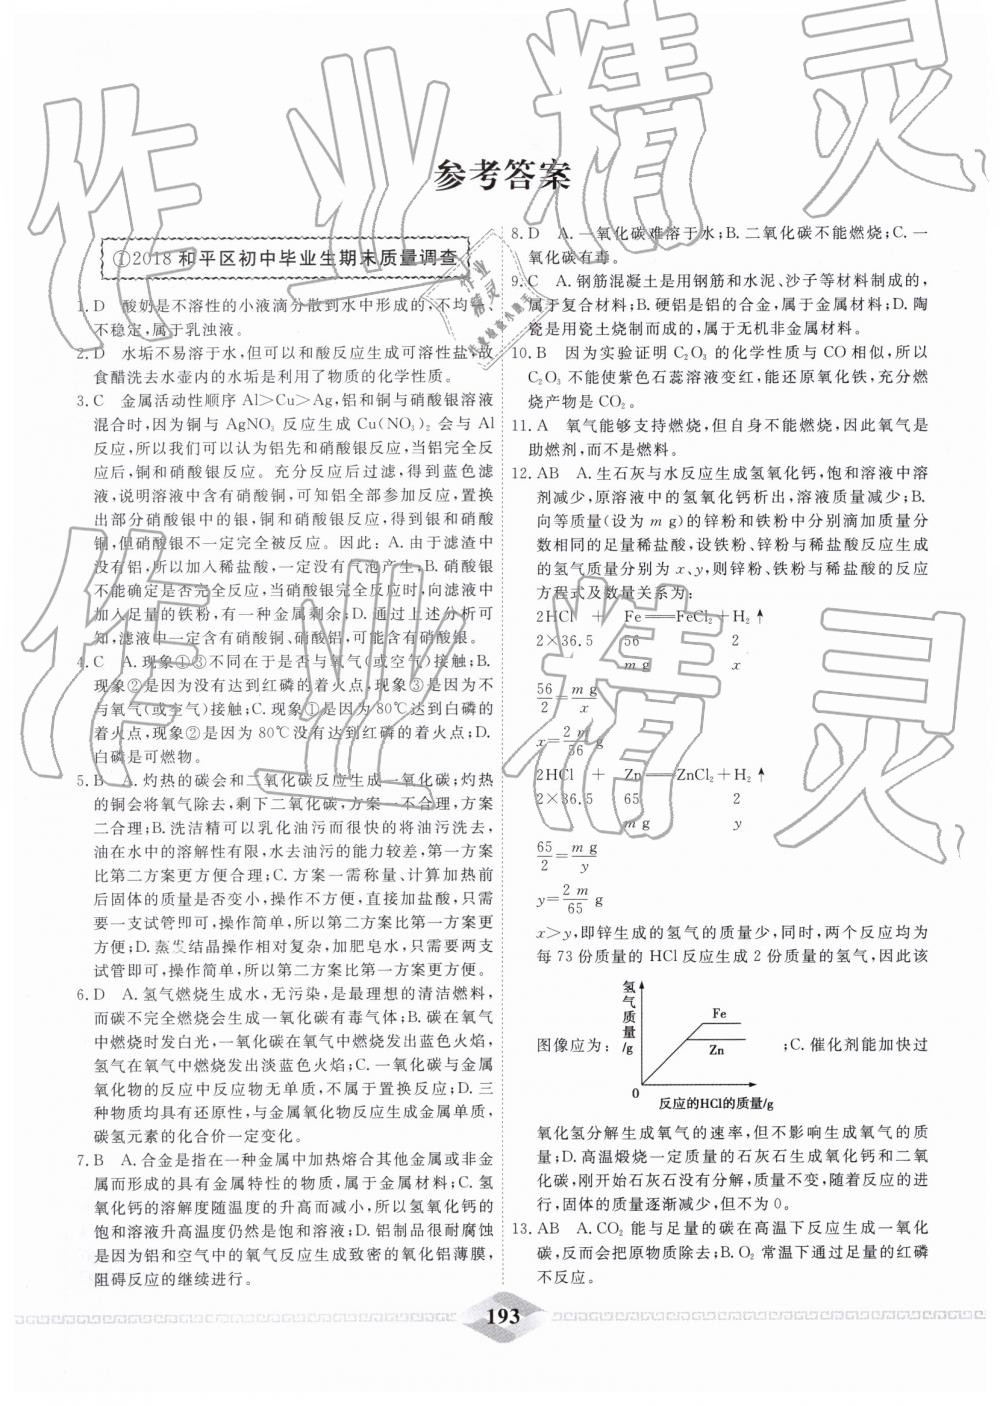 参考答案
①2018 和平区初中毕业生期末质量调查
1. D　酸奶是不溶性的小液滴分散到水中形成的,不均一、
不稳定,属于乳浊液。
2. D　水垢不易溶于水,但可以和酸反应生成可溶性盐,故
食醋洗去水壶内的水垢是利用了物质的化学性质。
3. C　金属活动性顺序 Al＞Cu＞Ag,铝和铜与硝酸银溶液
混合时,因为铜与 AgNO₃ 反应生成 Cu(NO₃)₂ 会与 Al
反应,所以我们可以认为铝先和硝酸银反应,当铝完全反
应后,铜和硝酸银反应。充分反应后过滤,得到蓝色滤
液,说明溶液中含有硝酸铜,可知铝全部参加反应,置换
出部分硝酸银中的银,铜和硝酸银反应,得到银和硝酸
铜,但硝酸银不一定完全被反应。因此: A. 由于滤渣中
没有铝,所以加入稀盐酸,一定没有气泡产生; B. 硝酸银
不能确定是否完全反应,当硝酸银完全反应时,向滤液中
加入足量的铁粉,有一种金属剩余; D. 通过上述分析可
知,滤液中一定含有硝酸铜、硝酸铝,可能含有硝酸银。
4. C　A. 现象①③不同在于是否与氧气(或空气)接触; B.
现象②是因为没有达到红磷的着火点,现象③是因为不
与氧气(或空气)接触; C. 现象①是因为 80℃达到白磷的
着火点,现象②是因为 80℃没有达到红磷的着火点; D.
白磷是可燃物。
5. B　A. 灼热的碳会和二氧化碳反应生成一氧化碳;灼热
的铜会将氧气除去,剩下二氧化碳,方案一不合理,方案
二合理; B. 洗洁精可以乳化油污而很快的将油污洗去,
油在水中的溶解性有限,水去油污的能力较差,第一方案
比第二方案更方便合理; C. 方案一需称量、计算加热前
后固体的质量是否变小,操作不方便,直接加盐酸,只需
要一支试管即可,操作简单,所以第二方案比第一方案更
方便; D. 蒸发结晶操作相对复杂,加肥皂水,只需要两支
试管即可,操作简单,所以第二方案比第一方案更方便。
6. D　A. 氢气燃烧生成水,无污染,是最理想的清洁燃料,
而碳不完全燃烧会生成一氧化碳有毒气体; B. 碳在氧气
中燃烧时发白光,一氧化碳在氧气中燃烧发出蓝色火焰,
氢气在氧气中燃烧发出淡蓝色火焰; C. 一氧化碳与金属
氧化物的反应中反应物无单质,不属于置换反应; D. 三
种物质均具有还原性,与金属氧化物反应生成金属单质,
碳氢元素的化合价一定变化。
7. B　A. 合金是指在一种金属中加热熔合其他金属或非金
属而形成的具有金属特性的物质,属于金属材料; C. 氢
氧化钙的溶解度随温度的升高而减小,所以氢氧化钙的
饱和溶液升高温度仍然是饱和溶液; D. 铝制品很耐腐蚀
是因为铝和空气中的氧气反应生成致密的氧化铝薄膜,
阻碍反应的继续进行。
8. D　A. 一氧化碳难溶于水; B. 二氧化碳不能燃烧; C. 一
氧化碳有毒。
9. C　A. 钢筋混凝土是用钢筋和水泥、沙子等材料制成的,
属于复合材料; B. 硬铝是铝的合金,属于金属材料; D. 陶
瓷是用瓷土烧制而成的,属于无机非金属材料。
10. B　因为实验证明 C₂O₃ 的化学性质与 CO 相似,所以
C₂O₃ 不能使紫色石蕊溶液变红,能还原氧化铁,充分燃
烧产物是 CO₂。
11. A　氧气能够支持燃烧,但自身不能燃烧,因此氧气是
助燃剂,而不是燃料。
12. AB　A. 生石灰与水反应生成氢氧化钙,饱和溶液中溶
剂减少,原溶液中的氢氧化钙析出,溶液质量减少; B.
向等质量(设为 m g)的锌粉和铁粉中分别滴加质量分
数相同的足量稀盐酸,设铁粉、锌粉与稀盐酸反应生成
的氢气质量分别为 x、y,则锌粉、铁粉与稀盐酸的反应
方程式及数量关系为:
2HCl + Fe══FeCl₂＋H₂↑
2×36.5 56 2
m g x
56/2 = m g/x
x = 2 m/56 g
2HCl + Zn══ZnCl₂＋H₂↑
2×36.5 65 2
m g y
65/2 = m g/y
y = 2 m/65 g
x＞y,即锌生成的氢气的质量少,同时,两个反应均为
每 73 份质量的 HCl 反应生成 2 份质量的氢气,因此该
图像应为: 氢气质量/g Fe Zn 0 反应的HCl的质量/g ; C. 催化剂能加快过
氧化氢分解生成氧气的速率,但不影响生成氧气的质
量; D. 高温煅烧一定质量的石灰石生成氧化钙和二氧
化碳,刚开始石灰石没有分解,质量不变,随着反应的进
行,固体的质量逐渐减少,但不为 0。
13. AB　A. CO₂ 能与足量的碳在高温下反应生成一氧化
碳,反而会把原物质除去; B. O₂ 常温下通过足量的红磷
不反应。
193
作业精灵
作业精灵